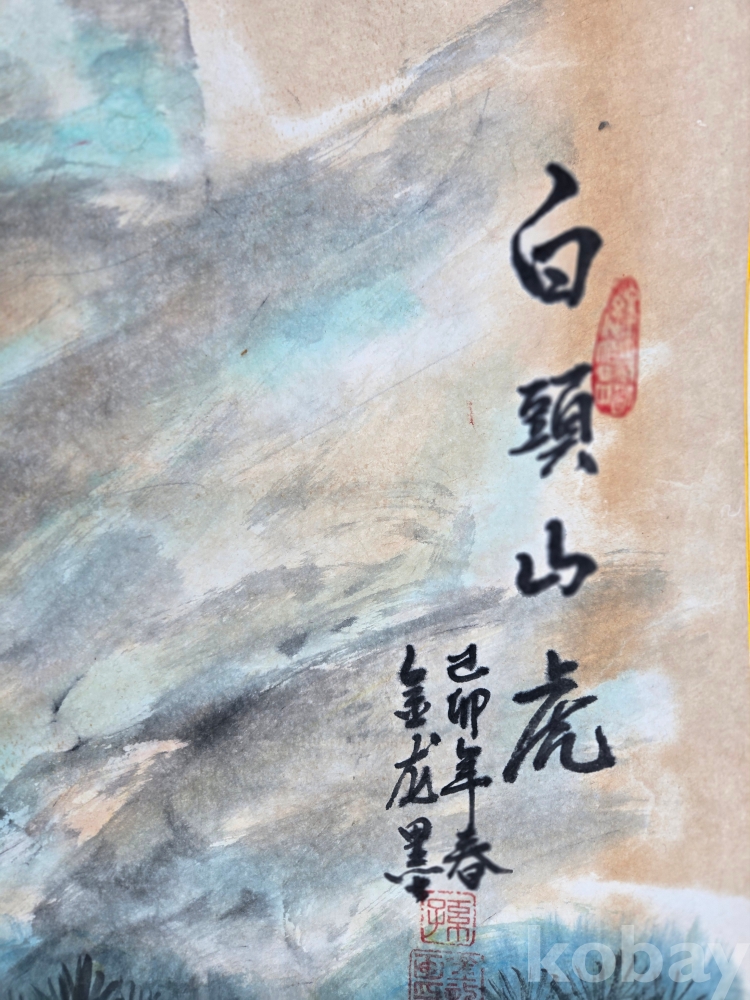 白頭山虎
己卯年春
金龙墨
孫
kobay